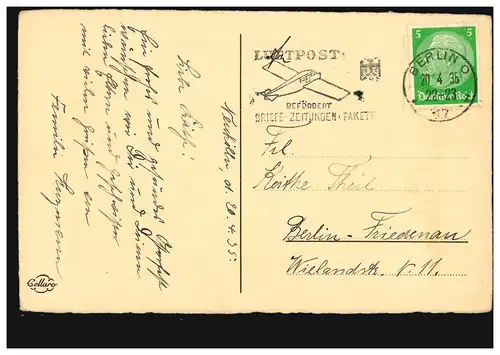 Neukölln, d. 20.4.35.
Liebe Käthe!
Ein frohes und gesundes Osterfest
wünschen wir Dir und Deinen
lieben Eltern und
mit vielen Grüßen an
Familie
Cellaro
LUFTPOST
BEFÖRDERT
BRIEFE·ZEITUNGEN·PAKETE
BERLIN O
20.4.35
17
5 5
Deutsches Reich
Frl.
Käthe Theil
Berlin-Friedenau
Wielandstr. N. 11.